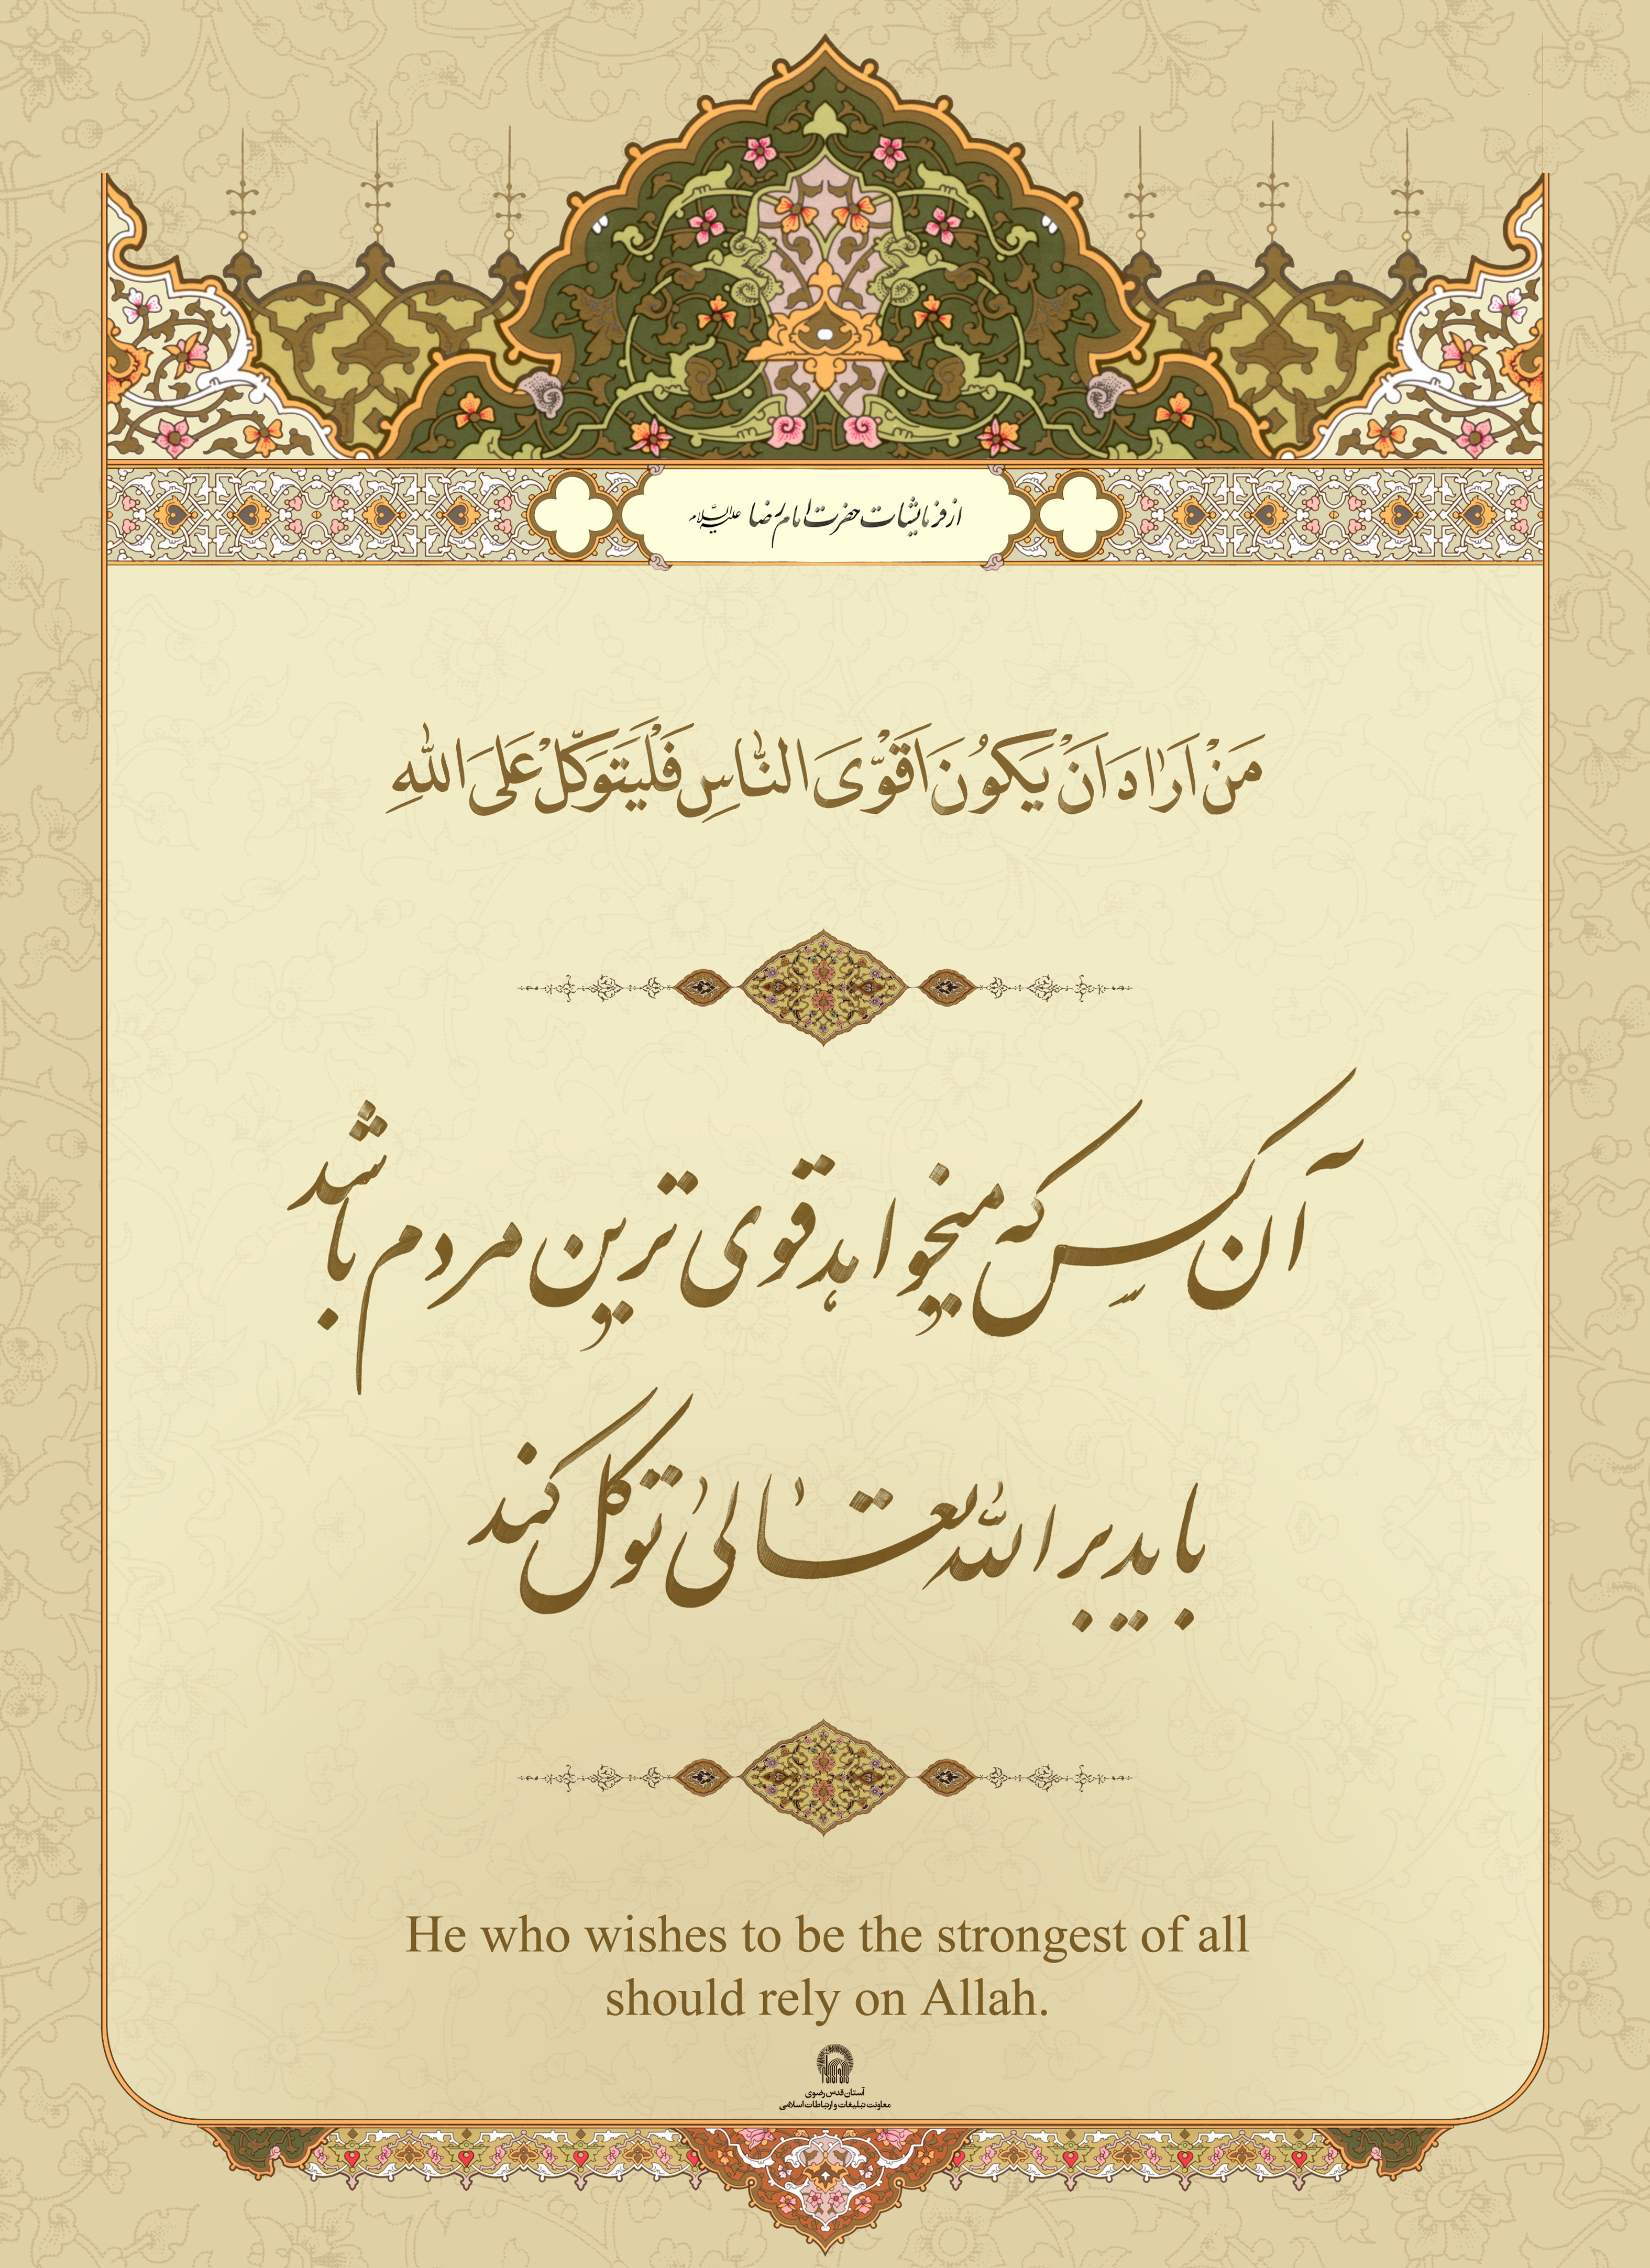 از فرمایشات حضرت امام رضا علیه‌السلام
مَنْ اَرٰادَ اَنْ یَکوُنَ اَقْوَی النّٰاسِ فَلْیَتَوَکَّلْ عَلَی اللّٰهِ
آن کس که میخواهد قوی ترین مردم باشد
باید بر اللّٰه تعٰالیٰ توکل کند
He who wishes to be the strongest of all
should rely on Allah.
آستان قدس رضوی
معاونت تبلیغات و ارتباطات اسلامی